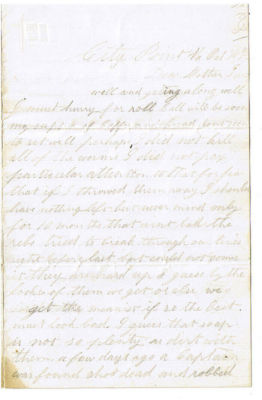 City Point Va Oct
Dear Mother I am
well and getting along well
I must hurry for roll call will be soon
my cup of coffee and bread
to set well perhaps I did not kill
all of the worms I did not pay
particular attention to that for fear
that if I throwed them away I should
have nothing left but never mind only
for 10 months that aint long the
rebs tried to break through our lines
night before last but could not
it they are hard up I guess by the
looks of them we got
the meanest if so the best
must look bad. I guess that soap
is not so plenty as dirt with
them a few days ago a Captain
was found shot dead and robbed